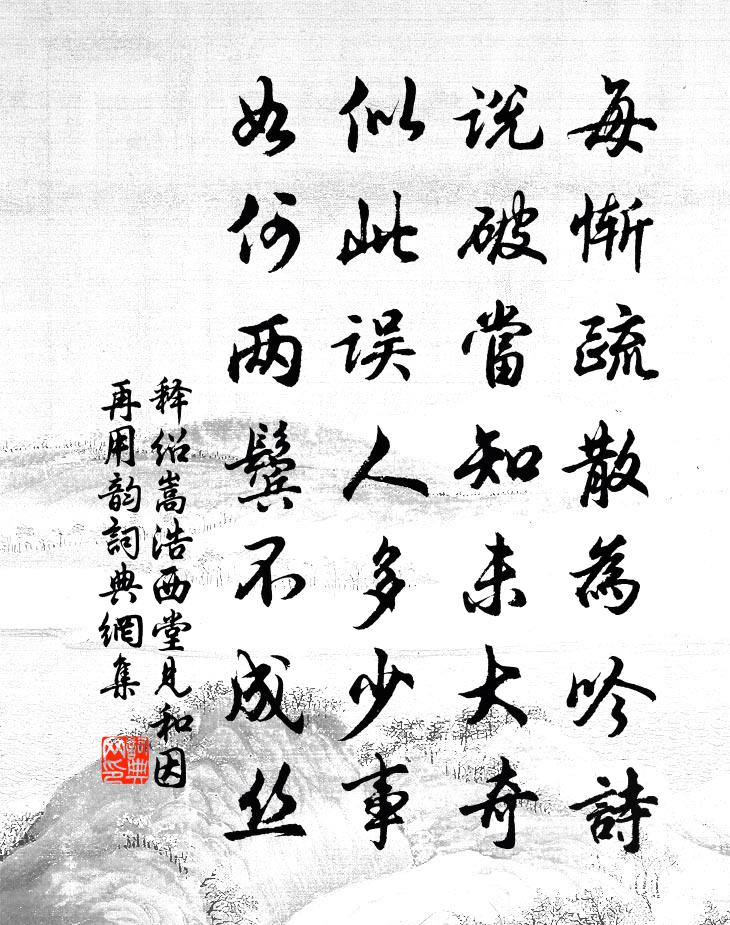 每惭疏散為吟詩
说破當知未大奇
似此误人多少事
如何两鬓不成丝
释绍嵩浩西堂見和因
再用韵詞典網集
詞典